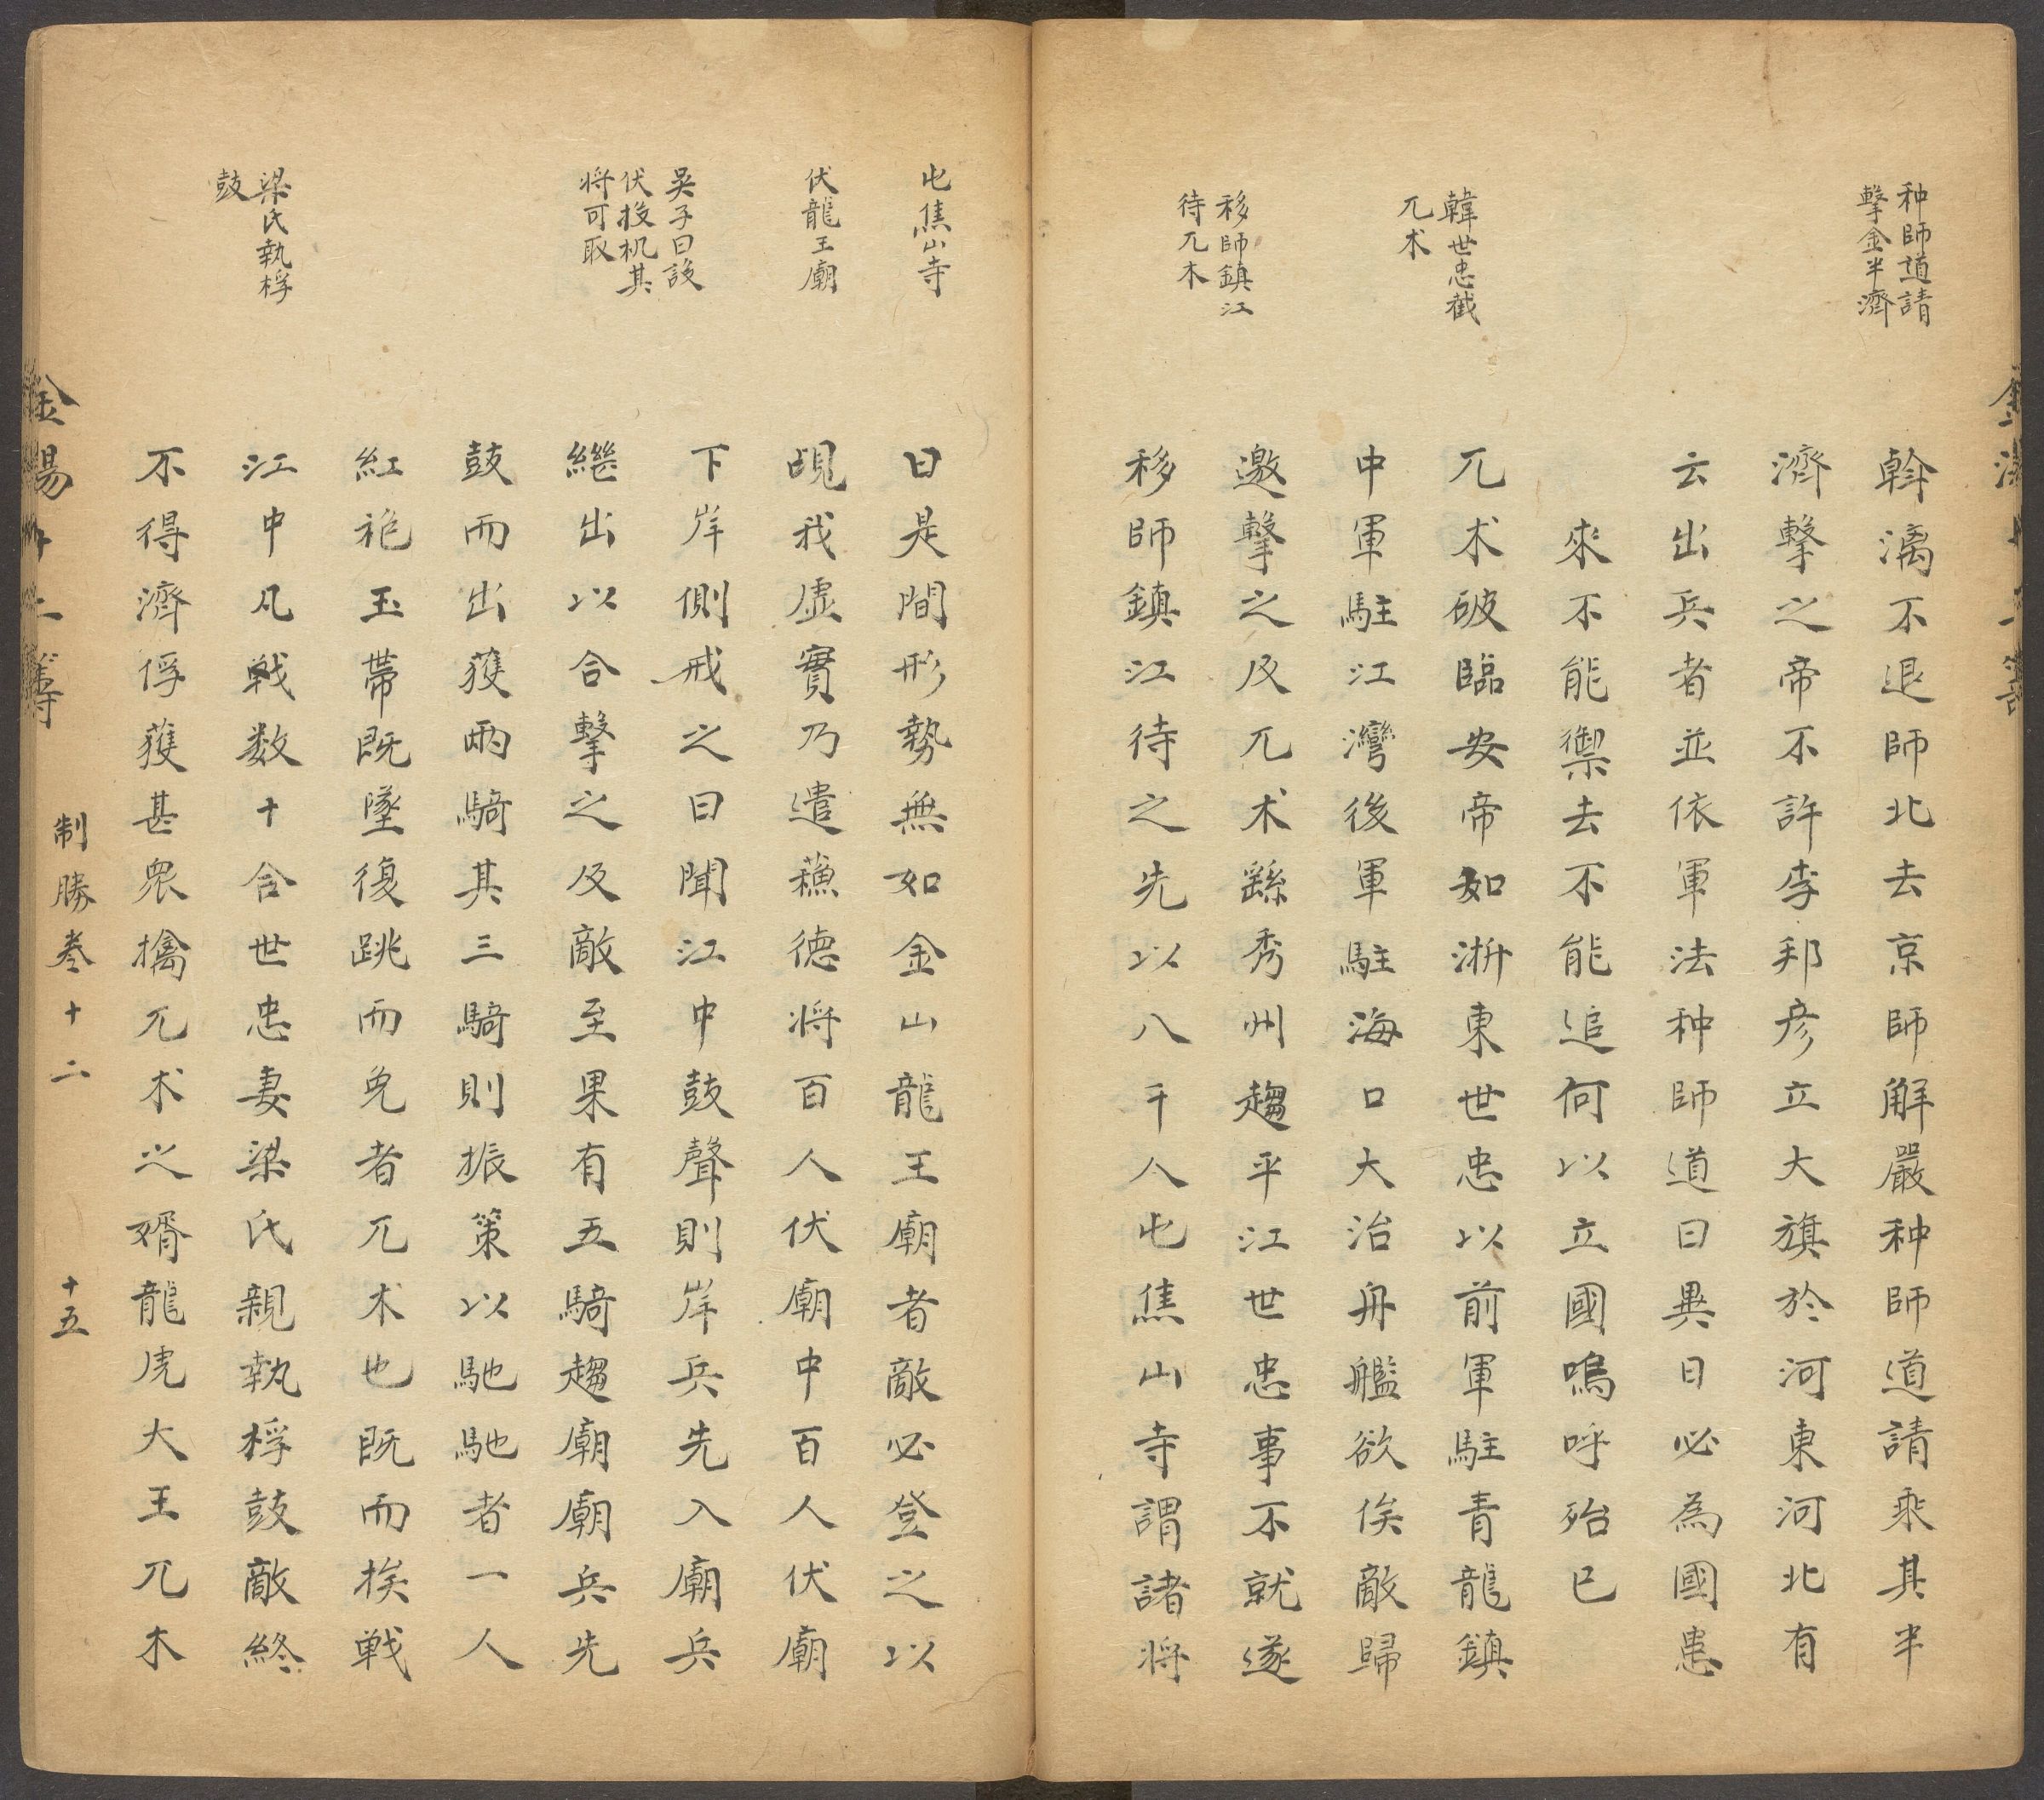 种師道請
擊金半濟
韓世忠截
兀术
移師鎮江
待兀木
斡漓不退師北去京師解嚴种師道請乘其半
濟擊之帝不許李邦彦立大旗於河東河北有
云出兵者並依軍法种師道曰異日必為國患
來不能禦去不能追何以立國嗚呼殆已
兀术破臨安帝如浙東世忠以前軍駐青龍鎮
中軍駐江灣後軍駐海口大治舟艦欲俟敵歸
邀擊之及兀术繇秀州趨平江世忠事不就遂
移師鎮江待之先以八千人屯焦山寺謂諸将
屯焦山寺
伏龍王廟
吳子曰設
伏投机其
将可取
梁氏執桴
鼓
曰是間形勢無如金山龍王廟者敵必登之以
覘我虛實乃遣蘓德将百人伏廟中百人伏廟
下岸側戒之曰聞江中鼓聲則岸兵先入廟兵
繼出以合擊之及敵至果有五騎趨廟廟兵先
鼓而出獲兩騎其三騎則振策以馳馳者一人
紅袍玉帶既墜復跳而免者兀术也既而挨戦
江中凡戦数十合世忠妻梁氏親執桴鼓敵終
不得濟俘獲甚衆擒兀术之婿龍虎大王兀木
金湯十二籌
制勝卷十二
十五